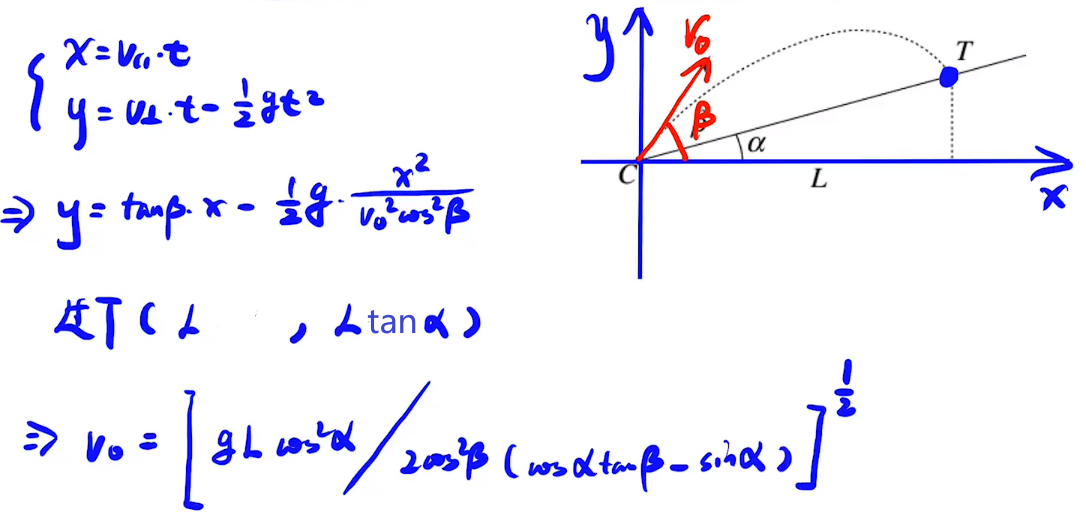 { x = v₍₎·t
y = v⊥·t − ½gt²
⇒ y = tanβ·x − ½g·x²/(v₀²cos²β)
过T ( L , L tan α )
⇒ v₀ = [ gL cos²α / 2cos²β ( cosα tanβ − sinα ) ]^½
y
v₀
T
β
α
C
L
x